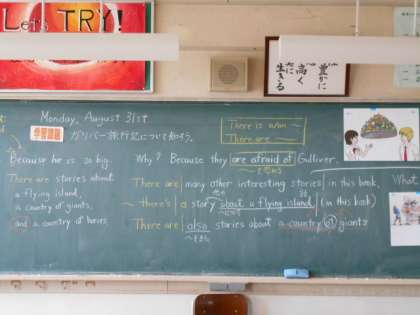 Let's TRY!
豊かに
高く
生きる
Monday, August 31st
学習課題 ガリバー旅行記について知ろう。
There is a/an ~
There are ~
Because he is so big.
Why? Because they are afraid of Gulliver.
There are stories about
a flying island,
a country of giants,
and a country of horses.
There are many other interesting stories in this book.
~ there's a story about a flying island (in this book)
There are also stories about a country of giants
What